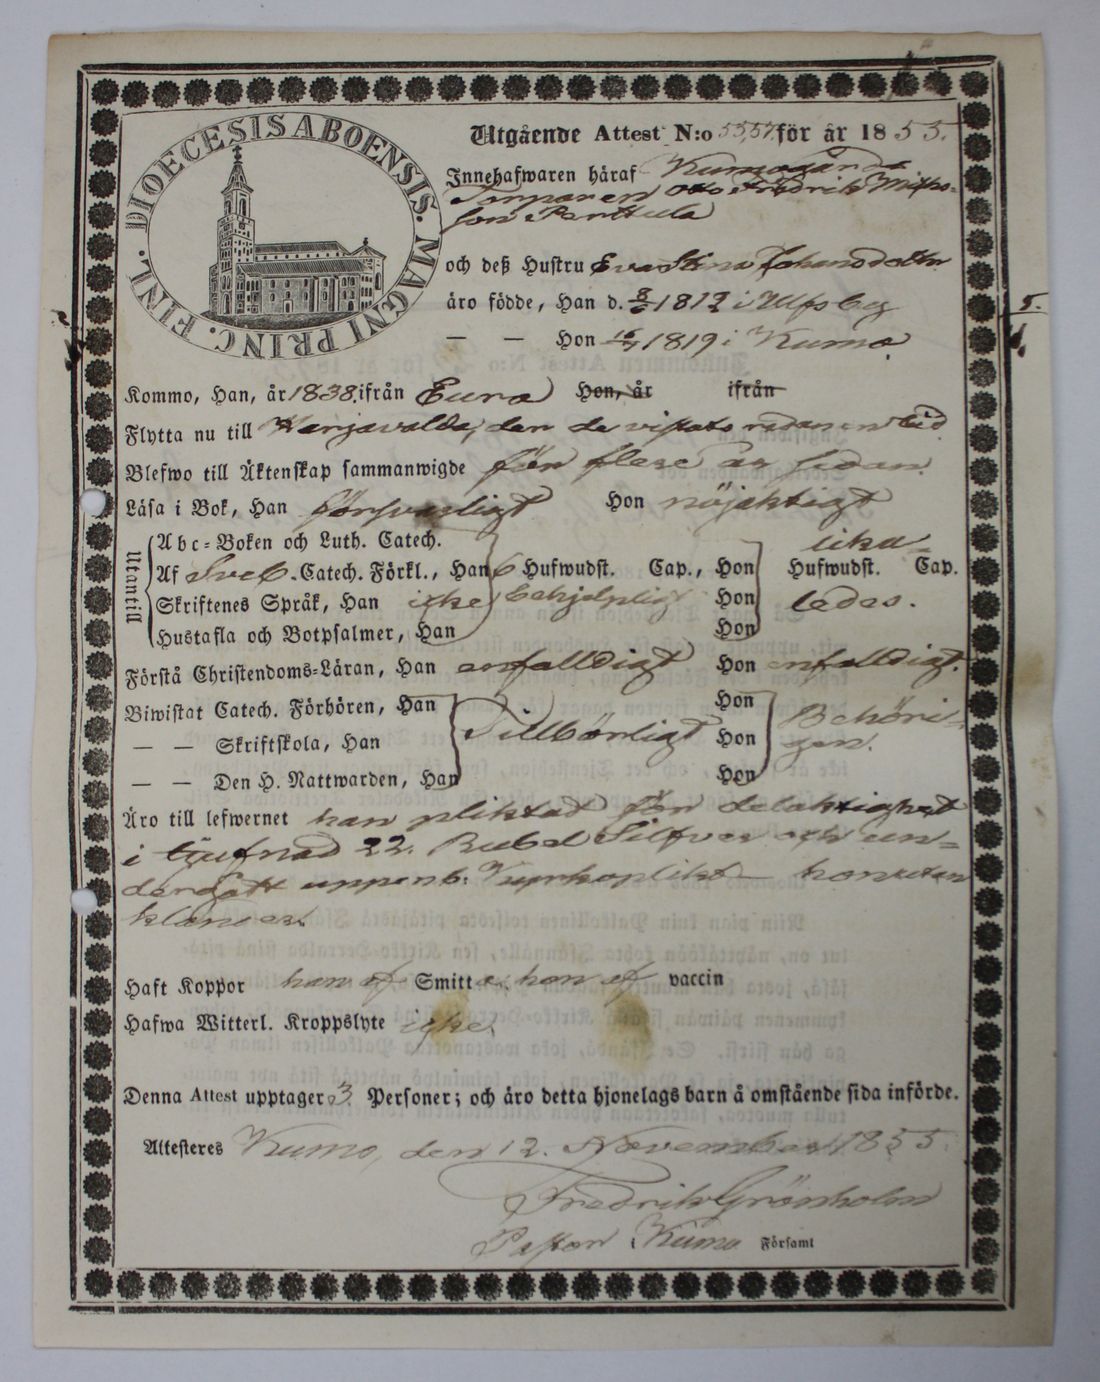 DIOECESIS ABOENSIS. MAGNI PRINC. FINL.
Utgående Attest N:o 55,57. för år 1855.
Innehafwaren häraf Kumogårds
Torparen Otto Fredrik Mikels-
son Perttula
och deß Hustru Eva Stina Johansdotter
äro födde, Han d. 1812 i Ulfsby
— — Hon 1819 i Kumo
Kommo, Han, år 1838 ifrån Eura Hon, år ifrån
Flytta nu till Harjavalda, der de vistats redan en tid
Blefwo till Äktenskap sammanwigde för flere år sedan.
Läsa i Bok, Han försvarligt Hon nöjaktigt
Utantill
Abc-Boken och Luth. Catech. lika-
Af Sveb. Catech. Förkl., Han 6 Hufwudst. Cap., Hon Hufwudst. Cap.
Skriftenes Språk, Han icke behjelpligt Hon ledes.
Hustafla och Botpsalmer, Han Hon
Förstå Christendoms-Läran, Han enfalldigt Hon enfalldigt.
Biwistat Catech. Förhören, Han Hon
— — Skriftskola, Han Tillbörligt Hon Behöri-
gen.
— — Den H. Nattwarden, Han Hon
Äro till lefwernet han pliktat för delaktighet
i tjufnad 22. Rubel Silfver och un-
dergått uppenb. Kyrkoplikt — hon utan
klander.
Haft Koppor han af Smitta, hon af vaccin
Hafwa Witterl. Kroppslyte icke.
Denna Attest upptager 3 Personer; och äro detta hjonelags barn å omstående sida införde.
Attesteres Kumo, den 12. November 1855.
Fredrik Grönholm
Pastor i Kumo Församl